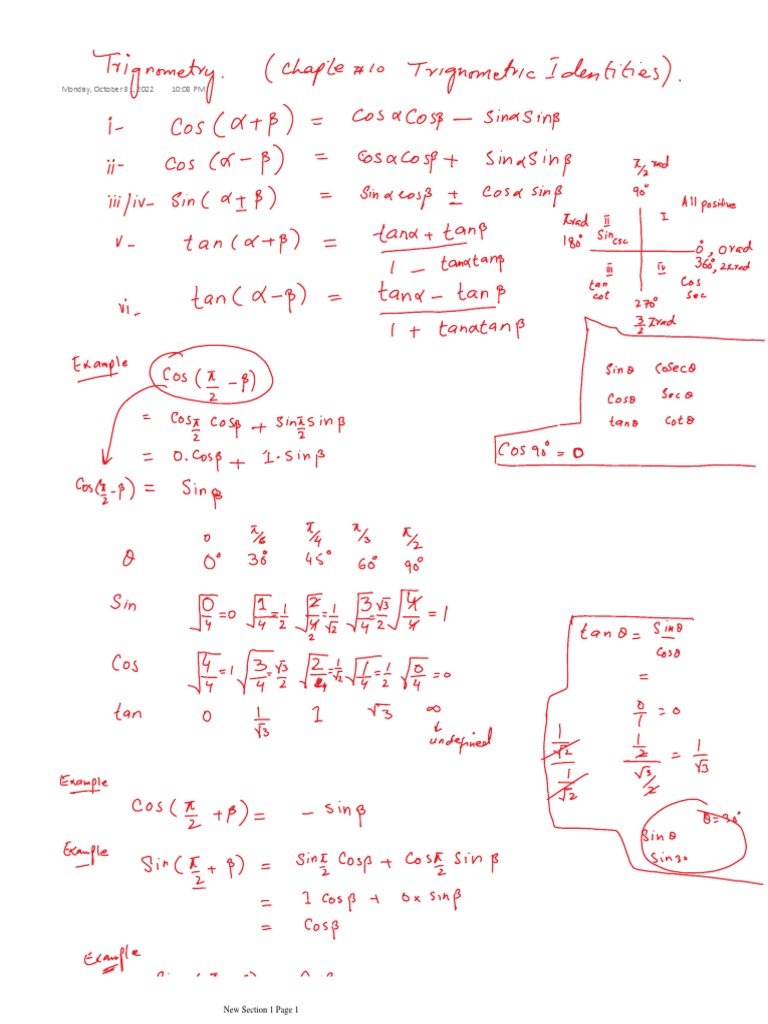 Trignometry. (Chapte #10 Trignometric Identities).
Monday, October 31, 2022 10:08 PM
i- Cos(α+β) = Cosα Cosβ – Sinα Sinβ
ii- Cos (α-β) = Cosα Cosβ + Sinα Sinβ
iii/iv- Sin(α ± β) = Sinα cosβ ± Cosα sinβ
v- tan(α+β) = (tanα + tanβ) / (1 - tanα tanβ)
vi- tan(α-β) = (tanα - tanβ) / (1 + tanα tanβ)
π/2 rad
90°
All positive
I
II
Sin csc
π rad
180°
0°, 0 rad
360°, 2π rad
III
tan
cot
IV
Cos
Sec
270°
3/2 π rad
Sinθ Cosecθ
Cosθ Secθ
tanθ cotθ
Cos 90° = 0
Example
Cos(π/2 - β)
= Cos π/2 Cosβ + Sin π/2 Sinβ
= 0.Cosβ + 1.Sinβ
Cos(π/2 - β) = Sinβ
0 π/6 π/4 π/3 π/2
θ 0° 30° 45° 60° 90°
Sin √(0/4) = 0 √(1/4) = 1/2 √(2/4) = 1/√2 √(3/4) = √3/2 √(4/4) = 1
2
Cos √(4/4) = 1 √(3/4) = √3/2 √(2/4) = 1/√2 √(1/4) = 1/2 √(0/4) = 0
tan 0 1/√3 1 √3 ∞
undefined
tanθ = Sinθ / Cosθ
=
0/1 = 0
(1/√2) / (1/√2)
(1/2) / (√3/2) = 1/√3
θ = 30°
Sinθ
Sin 30
Example
Cos(π/2 + β) = - Sinβ
Example
Sin(π/2 + β) = Sin π/2 Cosβ + Cos π/2 Sinβ
= 1 Cosβ + 0 x Sinβ
= Cosβ
Example
New Section 1 Page 1